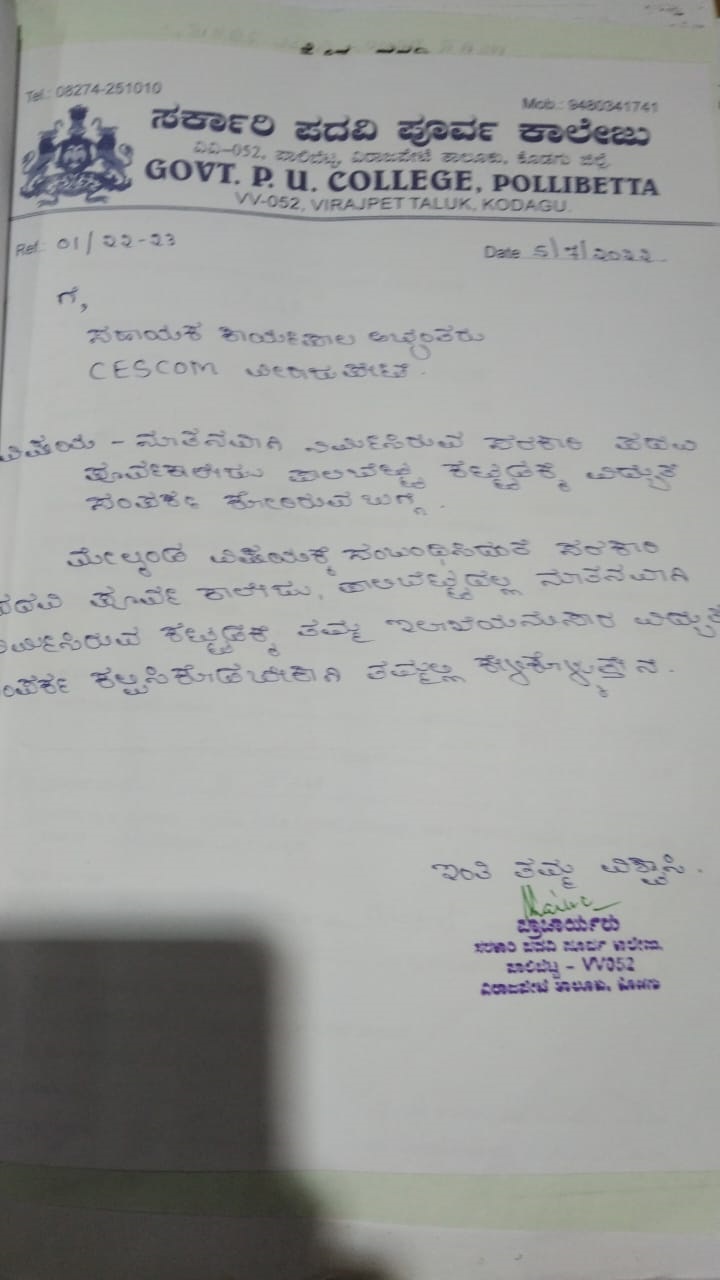 Tel.: 08274-251010
Mob.: 9480341741
ಸರ್ಕಾರಿ ಪದವಿ ಪೂರ್ವ ಕಾಲೇಜು
ವಿವಿ-052, ಪಾಲಿಬೆಟ್ಟ, ವಿರಾಜಪೇಟೆ ತಾಲೂಕು, ಕೊಡಗು ಜಿಲ್ಲೆ.
GOVT. P. U. COLLEGE, POLLIBETTA
VV-052, VIRAJPET TALUK, KODAGU.
Ref.: 01/22-23
Date 5/7/2022
ಗೆ,
ಸಹಾಯಕ ಕಾರ್ಯಪಾಲ ಅಭ್ಯಂತರು
CESCOM ವೀರಾಜಪೇಟೆ.
ವಿಷಯ - ನೂತನವಾಗಿ ನಿರ್ಮಿಸಿರುವ ಸರಕಾರಿ ಪದವಿ
ಪೂರ್ವಕಾಲೇಜು ಪಾಲಿಬೆಟ್ಟ ಕಟ್ಟಡಕ್ಕೆ ವಿದ್ಯುತ್
ಸಂಪರ್ಕ ಕೋರಿರುವ ಬಗ್ಗೆ.
ಮೇಲ್ಕಂಡ ವಿಷಯಕ್ಕೆ ಸಂಬಂಧಿಸಿದಂತೆ ಸರಕಾರಿ
ಪದವಿ ಪೂರ್ವ ಕಾಲೇಜು, ಪಾಲಿಬೆಟ್ಟದಲ್ಲಿ ನೂತನವಾಗಿ
ನಿರ್ಮಿಸಿರುವ ಕಟ್ಟಡಕ್ಕೆ ತಮ್ಮ ಇಲಾಖೆಯನುಸಾರ ವಿದ್ಯುತ್
ಸಂಪರ್ಕ ಕಲ್ಪಿಸಿಕೊಡಬೇಕಾಗಿ ತಮ್ಮಲ್ಲಿ ಕೇಳಿಕೊಳ್ಳುತ್ತೇನೆ.
ಇಂತಿ ತಮ್ಮ ವಿಶ್ವಾಸಿ.
ಪ್ರಾಚಾರ್ಯರು
ಸರಕಾರಿ ಪದವಿ ಪೂರ್ವ ಕಾಲೇಜು,
ಪಾಲಿಬೆಟ್ಟ - VV052
ವಿರಾಜಪೇಟೆ ತಾಲೂಕು, ಕೊಡಗು